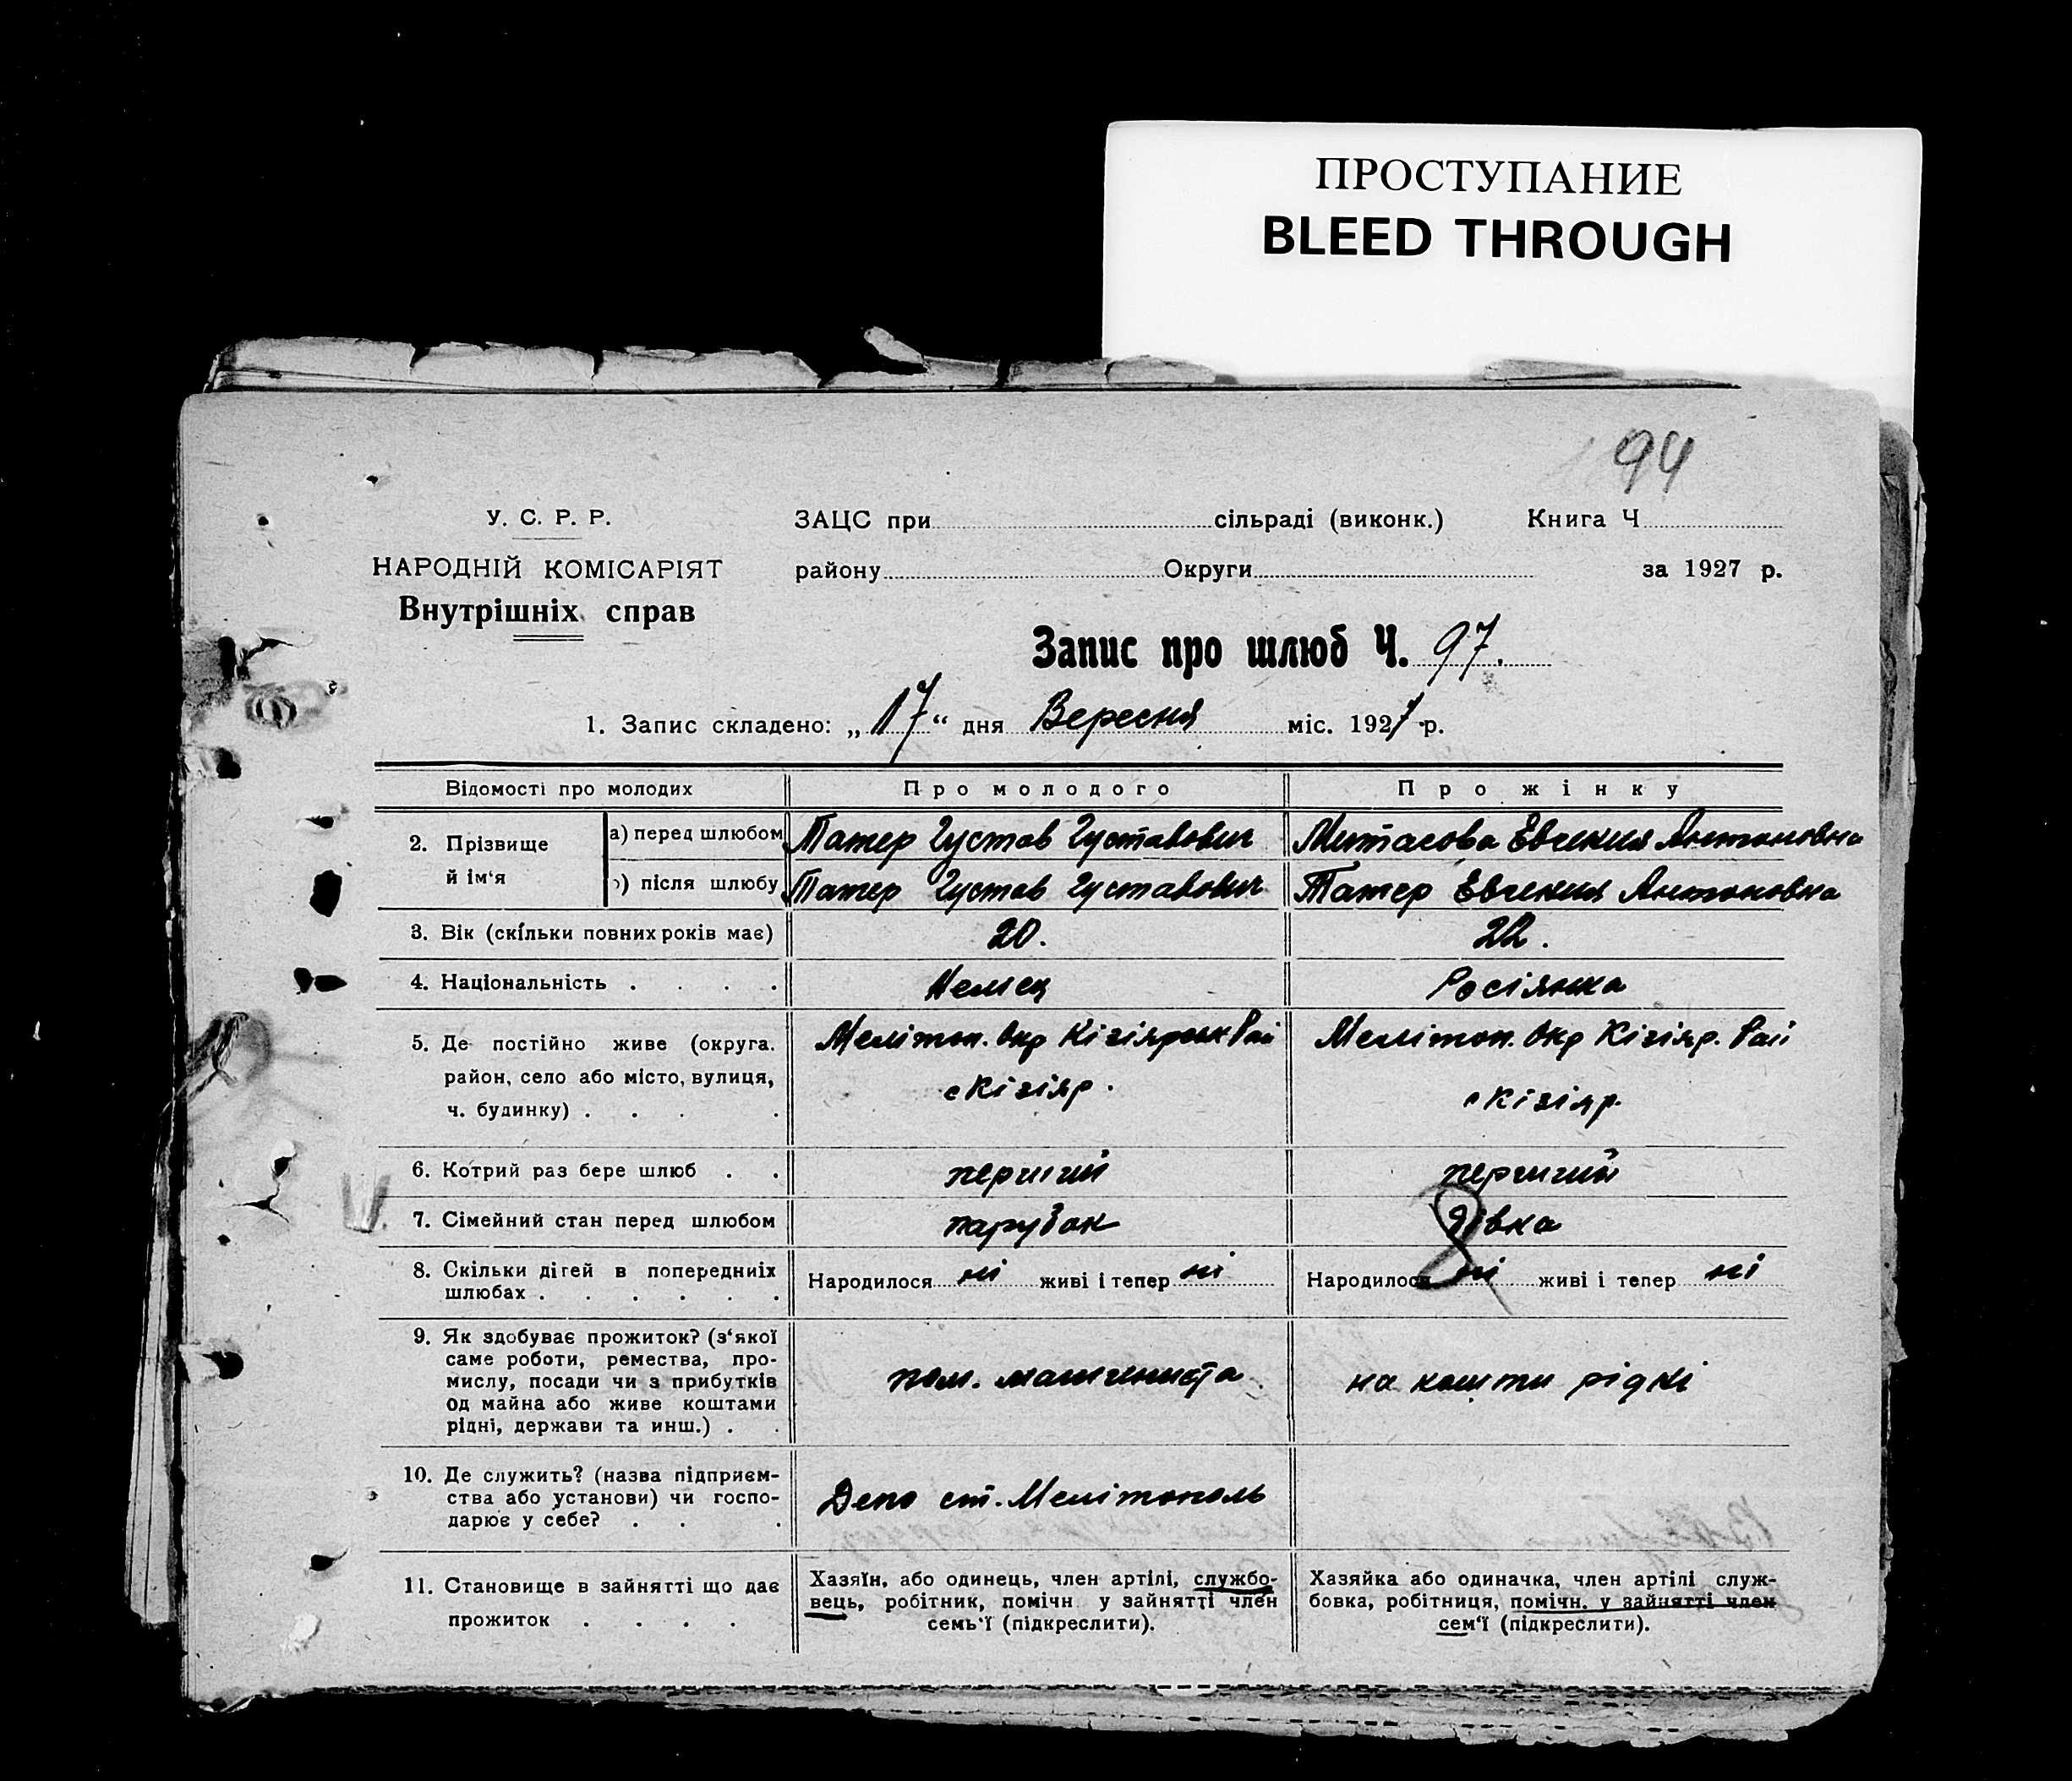 ПРОСТУПАНИЕ
BLEED THROUGH
94
У. С. Р. Р.
НАРОДНІЙ КОМІСАРІЯТ
Внутрішніх справ
ЗАЦС при сільраді (виконк.) Книга Ч
району Округи за 1927 р.
Запис про шлюб Ч. 97.
1. Запис складено: „17“ дня Вересня міс. 1927 р.
Відомості про молодих Про молодого Про жінку
2. Прізвище й ім‘я
а) перед шлюбом Патер Густав Густавович Митасова Евгения Антоновна
) після шлюбу Патер Густав Густавович Патер Евгения Антоновна
3. Вік (скільки повних років має) 20. 22.
4. Національність . . . . Немец Росіянка
5. Де постійно живе (округа. район, село або місто, вулиця, ч. будинку) . . . .
Мелітоп. Окр Кізіярськ Рай
с Кізіяр.
Мелітоп. Окр Кізіяр. Рай
с Кізіяр.
6. Котрий раз бере шлюб . . перший перший
7. Сімейний стан перед шлюбом парубок дівка
8. Скільки дітей в попередниіх
шлюбах . . . . . .
Народилося ні живі і тепер ні Народилося ні живі і тепер ні
9. Як здобуває прожиток? (з‘якої
саме роботи, ремества, про-
мислу, посади чи з прибутків
од майна або живе коштами
рідні, держави та инш.) . .
пом. машиниста на кошти рідні
10. Де служить? (назва підприєм-
ства або установи) чи госпо-
дарює у себе? . . .
Депо ст. Мелітополь
11. Становище в зайнятті що дає
прожиток . . . .
Хазяїн, або одинець, член артілі, службо-
вець, робітник, помічн. у зайнятті член
семь‘ї (підкреслити).
Хазяйка або одиначка, член артілі служ-
бовка, робітниця, помічн. у зайнятті член
сем‘ї (підкреслити).